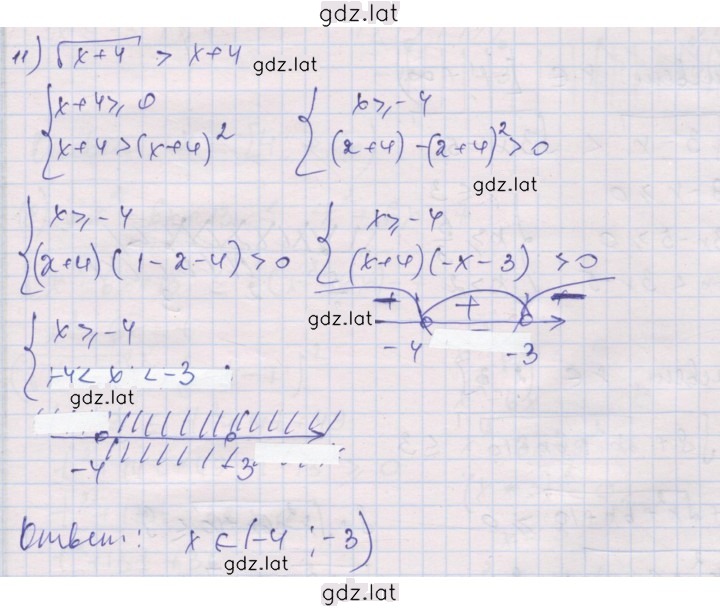 gdz.lat
11) √x+4 > x+4
gdz.lat
{ x+4 ≥ 0
x+4 > (x+4)²
{ x ≥ -4
(x+4) - (x+4)² > 0
gdz.lat
{ x ≥ -4
(x+4)(1-x-4) > 0
{ x ≥ -4
(x+4)(-x-3) > 0
gdz.lat
- + -
-4 -3
{ x ≥ -4
-4 < x < -3
gdz.lat
-4 -3
Ответ: x ∈ (-4 ; -3)
gdz.lat
gdz.lat